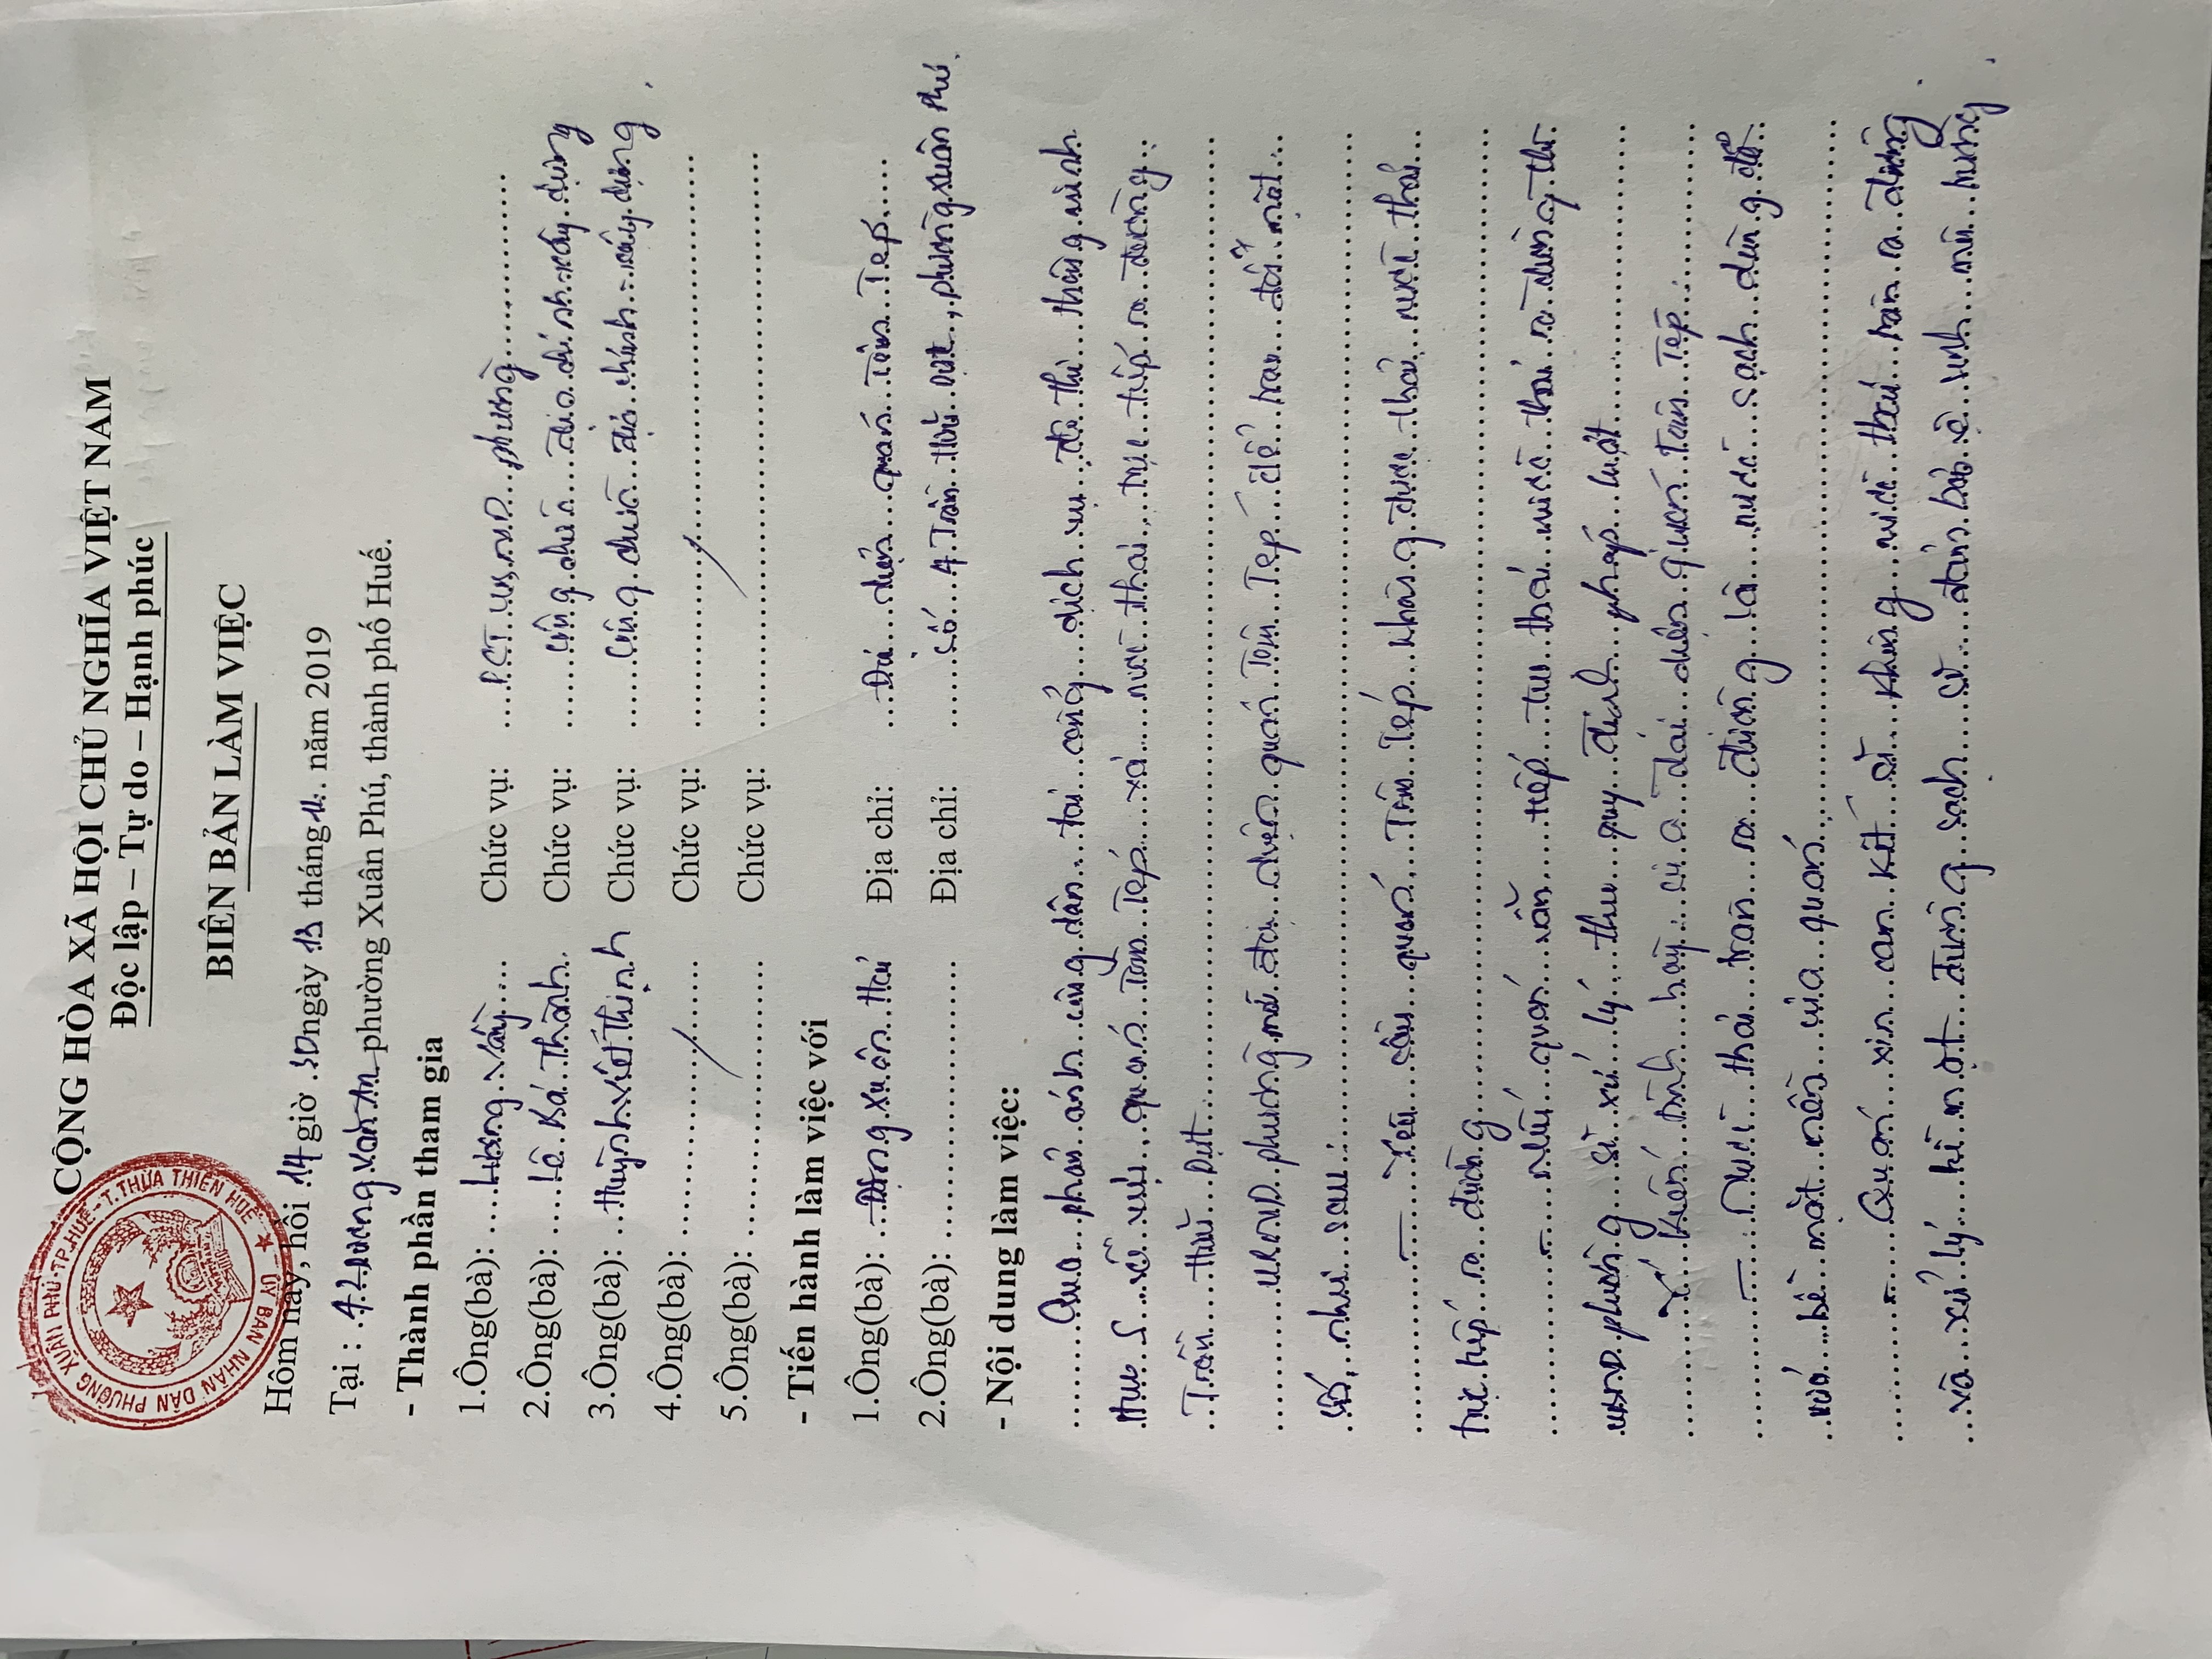 CỘNG HÒA XÃ HỘI CHỦ NGHĨA VIỆT NAM
Độc lập – Tự do – Hạnh phúc
ỦY BAN NHÂN DÂN PHƯỜNG XUÂN PHÚ-TP.HUẾ-T.THỪA THIÊN HUẾ
BIÊN BẢN LÀM VIỆC
Hôm nay, hồi 14 giờ 30 ngày 13 tháng 11 năm 2019
Tại : phường Xuân Phú, thành phố Huế.
- Thành phần tham gia
1.Ông(bà): Lương Chức vụ: P.CT UBND phường
2.Ông(bà): Lê Bá Thành Chức vụ: công chức địa chính - xây dựng
3.Ông(bà): Huỳnh Viết Thịnh Chức vụ: công chức địa chính - xây dựng
4.Ông(bà): Chức vụ:
5.Ông(bà): Chức vụ:
- Tiến hành làm việc với
1.Ông(bà): Xuân Địa chỉ: Đại diện quán Tôm Tép
2.Ông(bà): Địa chỉ: Số 4 Trần Hữu Dực, phường Xuân Phú
- Nội dung làm việc:
Qua phản ánh công dân tại cổng dịch vụ đô thị thông minh
Hue S về việc quán Tôm Tép xả nước thải trực tiếp ra đường
Trần Hữu Dực
UBND phường mời đại diện quán Tôm Tép để trao đổi một
số, như sau:
- Yêu cầu quán Tôm Tép không được thải nước thải
trực tiếp ra đường
- Nếu quán vẫn tiếp tục thải nước thải ra đường thì
UBND phường sẽ xử lý theo quy định pháp luật
Ý kiến của đại diện quán Tôm Tép:
- Nước thải tràn ra đường là nước sạch dùng để
bề mặt nền của quán
- Quán xin cam kết sẽ không nước thải tràn ra đường
và xử lý bề mặt đường sạch sẽ đảm bảo vệ sinh môi trường